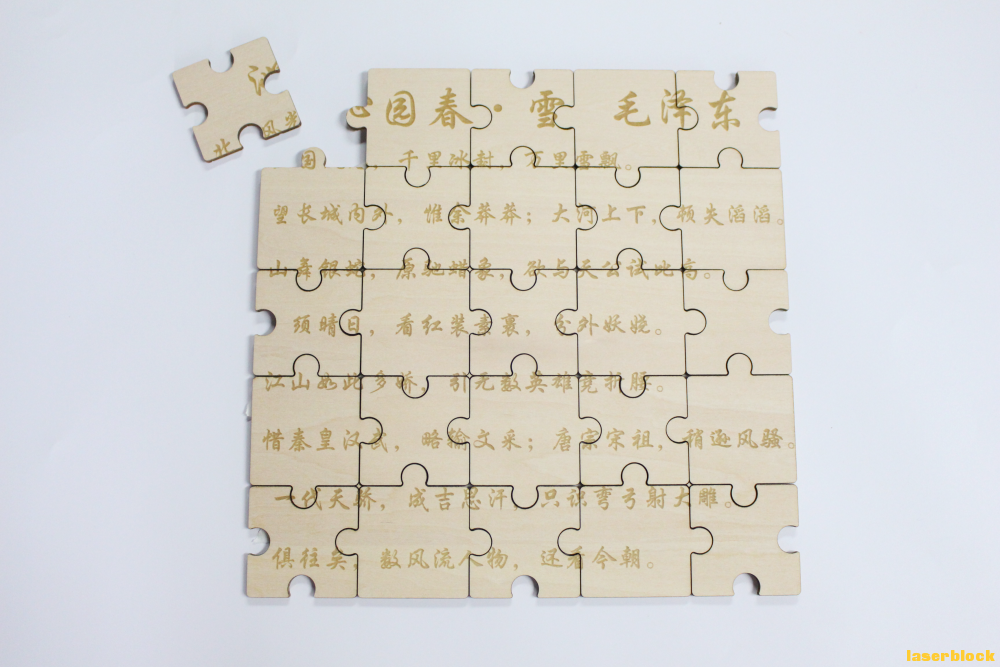 北 风光
沁园春·雪 毛泽东
国，千里冰封，万里雪飘。
望长城内外，惟余莽莽；大河上下，顿失滔滔。
山舞银蛇，原驰蜡象，欲与天公试比高。
须晴日，看红装素裹，分外妖娆。
江山如此多娇，引无数英雄竞折腰。
惜秦皇汉武，略输文采；唐宗宋祖，稍逊风骚。
一代天骄，成吉思汗，只识弯弓射大雕。
俱往矣，数风流人物，还看今朝。
laserblock